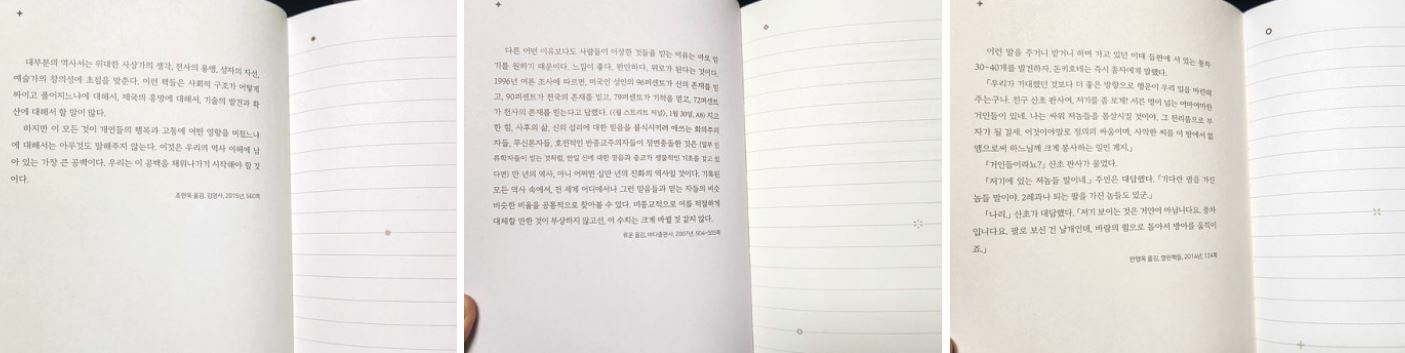 대부분의 역사서는 위대한 사상가의 생각, 전사의 용맹, 성자의 자선,
예술가의 창의성에 초점을 맞춘다. 이런 책들은 사회적 구조가 어떻게
짜이고 풀어지느냐에 대해서, 제국의 흥망에 대해서, 기술의 발견과 확
산에 대해서 할 말이 많다.
하지만 이 모든 것이 개인들의 행복과 고통에 어떤 영향을 미쳤느냐
에 대해서는 아무것도 말해주지 않는다. 이것은 우리의 역사 이해에 남
아 있는 가장 큰 공백이다. 우리는 이 공백을 채워나가기 시작해야 할 것
이다.
조현욱 옮김, 김영사, 2015년, 560쪽
다른 어떤 이유보다도 사람들이 이상한 것들을 믿는 이유는 바로 믿
기를 원하기 때문이다. 느낌이 좋다. 편안하다. 위로가 된다는 것이다.
1996년 여론 조사에 따르면, 미국인 성인의 96퍼센트가 신의 존재를 믿
고, 90퍼센트가 천국의 존재를 믿고, 79퍼센트가 기적을 믿고, 72퍼센트
가 천사의 존재를 믿는다고 답했다. (《월 스트리트 저널》, 1월 30일, A8) 지고
한 힘, 사후의 삶, 신의 섭리에 대한 믿음을 불식시키려 애쓰는 회의주의
자들, 무신론자들, 호전적인 반종교주의자들이 정면충돌한 것은 (일부 인
류학자들이 믿는 것처럼, 만일 신에 대한 믿음과 종교가 생물학적인 기초를 갖고 있
다면) 만 년의 역사, 아니 어쩌면 십만 년의 진화의 역사일 것이다. 기록된
모든 역사 속에서, 전 세계 어디에서나 그런 믿음들과 믿는 자들의 비슷
비슷한 비율을 공통적으로 찾아볼 수 있다. 비종교적으로 이를 적절하게
대체할 만한 것이 부상하지 않고선, 이 수치는 크게 바뀔 것 같지 않다.
류운 옮김, 바다출판사, 2007년, 504~505쪽
이런 말을 주거니 받거니 하며 가고 있던 이때 들판에 서 있는 풍차
30~40개를 발견하자, 돈키호테는 즉시 종자에게 말했다.
「우리가 기대했던 것보다 더 좋은 방향으로 행운이 우리 일을 바란해
주는구나. 친구 산초 판사여, 저기를 좀 보게! 서른 명이 넘는 어마어마한
거인들이 있네. 나는 싸워 저놈들을 몰살시킬 것이야. 그 전리품으로 부
자가 될 걸세. 이것이야말로 정의의 싸움이며, 사악한 씨를 이 땅에서 없
앰으로써 하느님께 크게 봉사하는 일인 게지.」
「거인들이라뇨?」 산초 판사가 물었다.
「저기에 있는 저놈들 말이네.」 주인은 대답했다. 「기다란 팔을 가진
놈들 말이야. 2레과나 되는 팔을 가진 놈들도 있군.」
「나리,」 산초가 대답했다. 「저기 보이는 것은 거인이 아닙니다요. 풍차
입니다요. 팔로 보신 건 날개인데, 바람의 힘으로 돌아서 방아를 움직이
죠.」
안영옥 옮김, 열린책들, 2014년, 124쪽